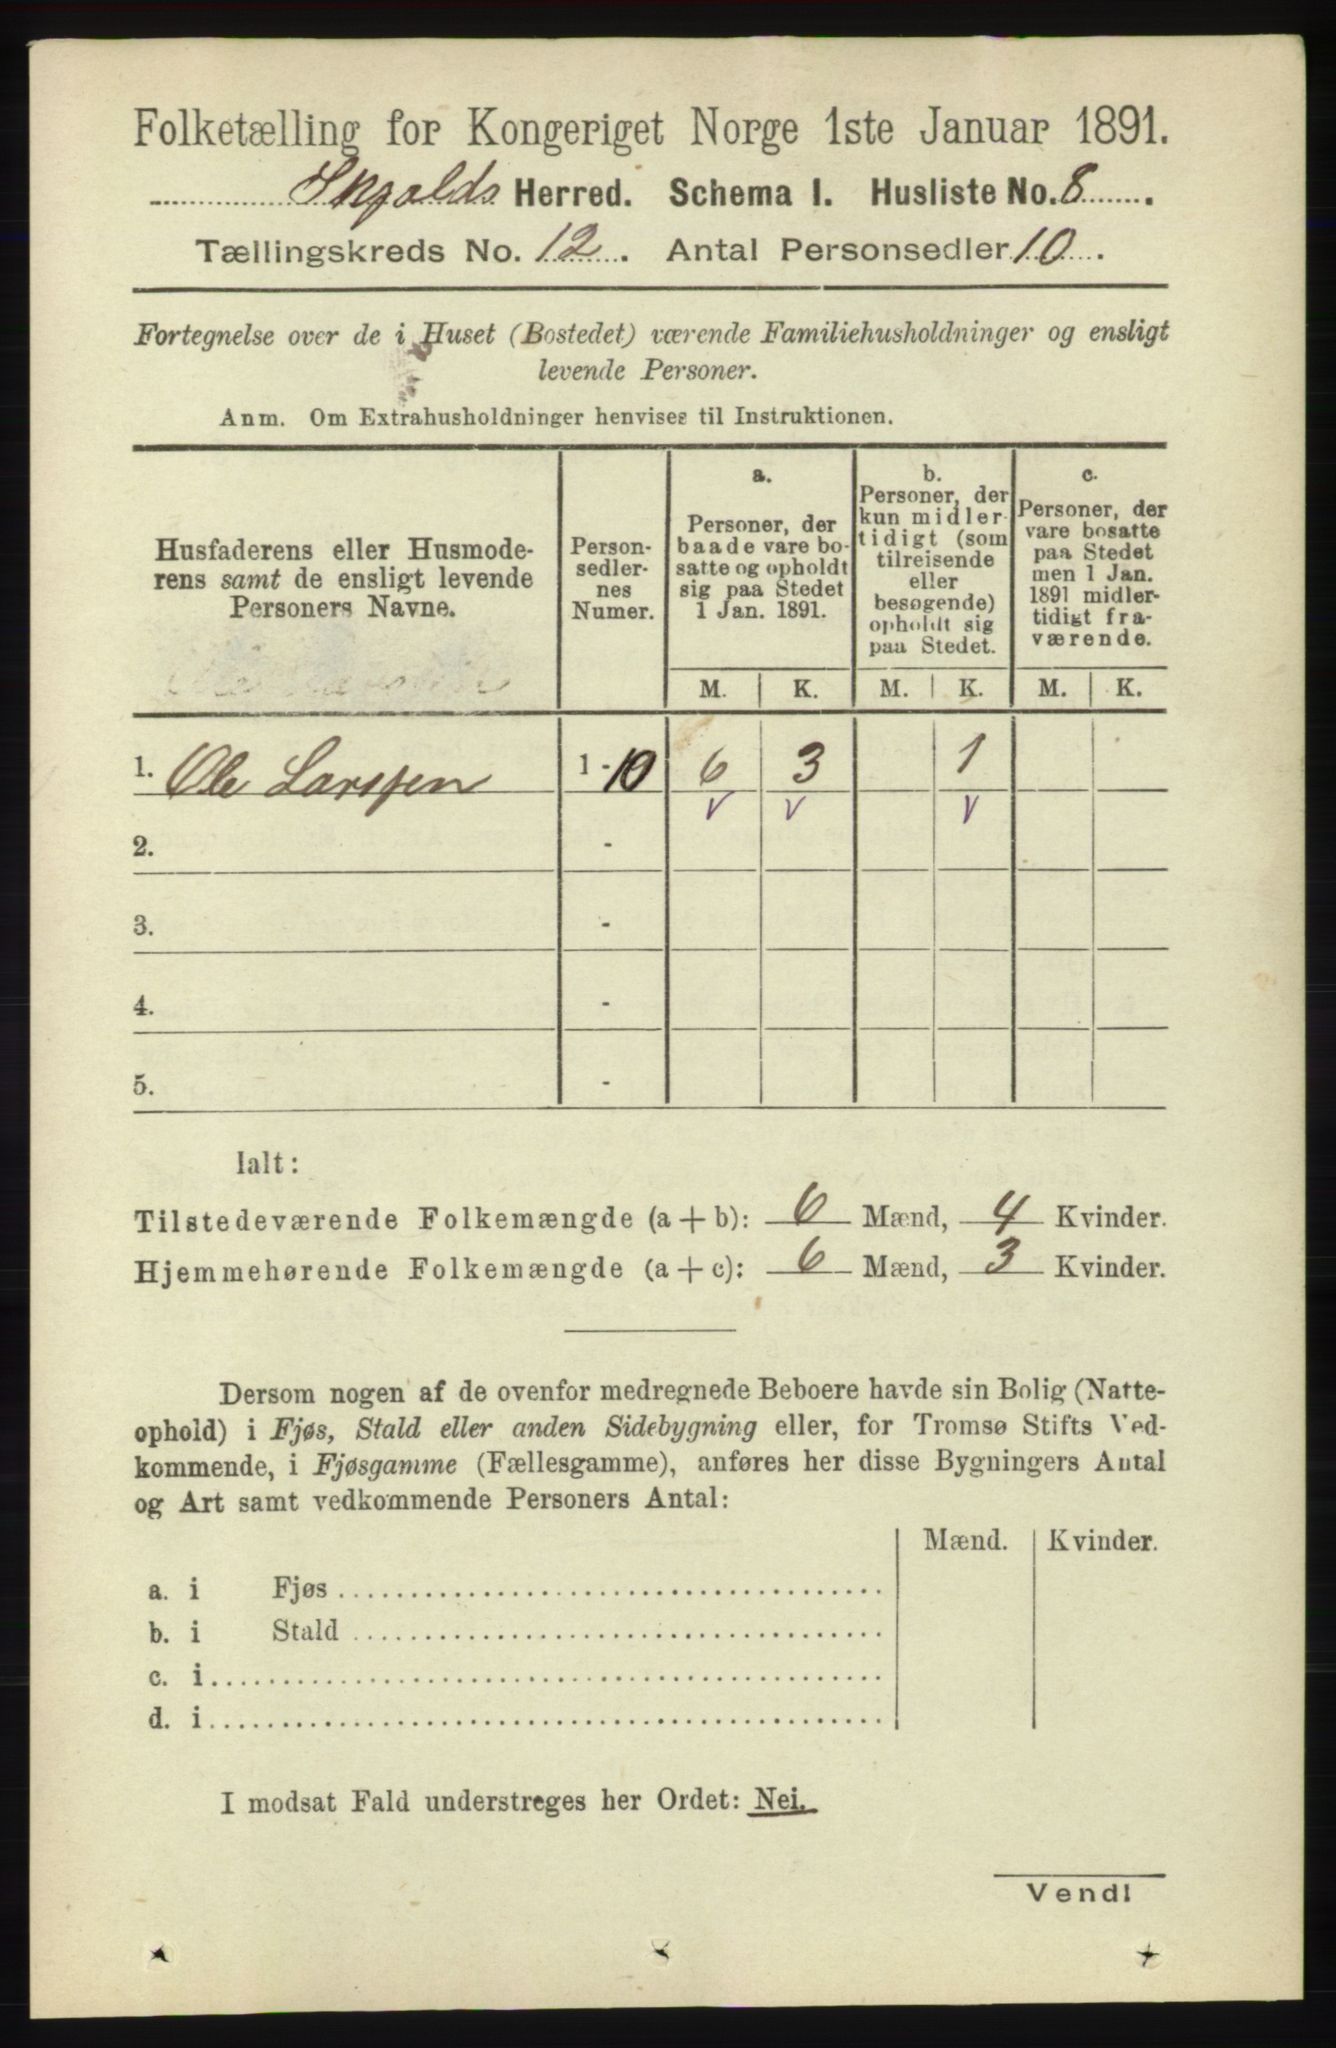 Folketælling for Kongeriget Norge 1ste Januar 1891.
Skjolds Herred. Schema I. Husliste No. 8
Tællingskreds No. 12. Antal Personsedler 10.
Fortegnelse over de i Huset (Bostedet) værende Familiehusholdninger og ensligt
levende Personer.
Anm. Om Extrahusholdninger henvises til Instruktionen.
Husfaderens eller Husmode-
rens samt de ensligt levende
Personers Navne.
Person-
sedler-
nes
Numer.
a.
Personer, der
baade vare bo-
satte og opholdt
sig paa Stedet
1 Jan. 1891.
b.
Personer, der
kun midler-
tidigt (som
tilreisende
eller
besøgende)
opholdt sig
paa Stedet.
c.
Personer, der
vare bosatte
paa Stedet
men 1 Jan.
1891 midler-
tidigt fra-
værende.
M. K. M. K. M. K.
1. Ole Larssen 1-10 6 3 1
v v v
2. -
3. -
4. -
5. -
Ialt:
Tilstedeværende Folkemængde (a + b): 6 Mænd, 4 Kvinder.
Hjemmehørende Folkemængde (a + c): 6 Mænd, 3 Kvinder.
Dersom nogen af de ovenfor medregnede Beboere havde sin Bolig (Natte-
ophold) i Fjøs, Stald eller anden Sidebygning eller, for Tromsø Stifts Ved-
kommende, i Fjøsgamme (Fællesgamme), anføres her disse Bygningers Antal
og Art samt vedkommende Personers Antal:
Mænd. Kvinder.
a. i Fjøs
b. i Stald
c. i
d. i
I modsat Fald understreges her Ordet: Nei.
Vend!